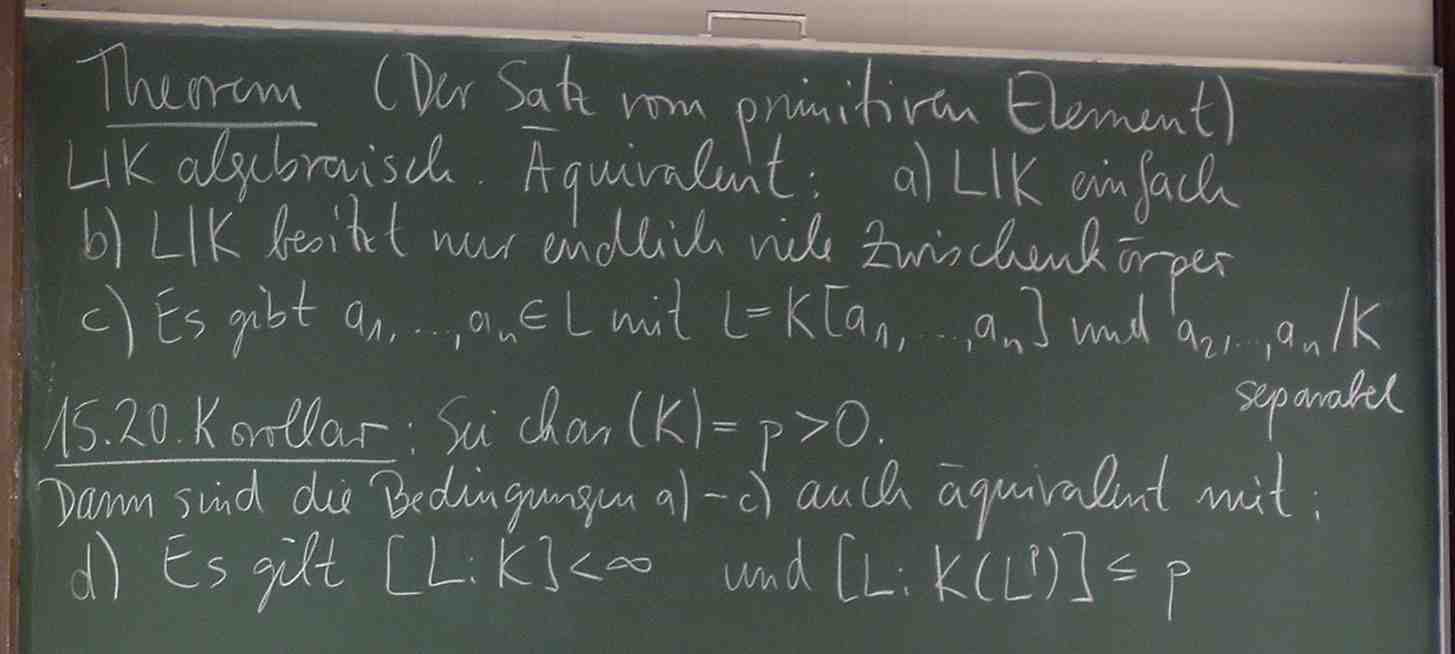 Theorem (Der Satz vom primitiven Element)
L|K algebraisch. Äquivalent: a) L|K einfach
b) L|K besitzt nur endlich viele Zwischenkörper
c) Es gibt a₁, ..., aₙ ∈ L mit L = K[a₁, ..., aₙ] und a₂, ..., aₙ /K
separabel
15.20. Korollar: Sei char(K) = p > 0.
Dann sind die Bedingungen a) – c) auch äquivalent mit:
d) Es gilt [L:K] < ∞ und [L:K(Lᵖ)] ≤ p